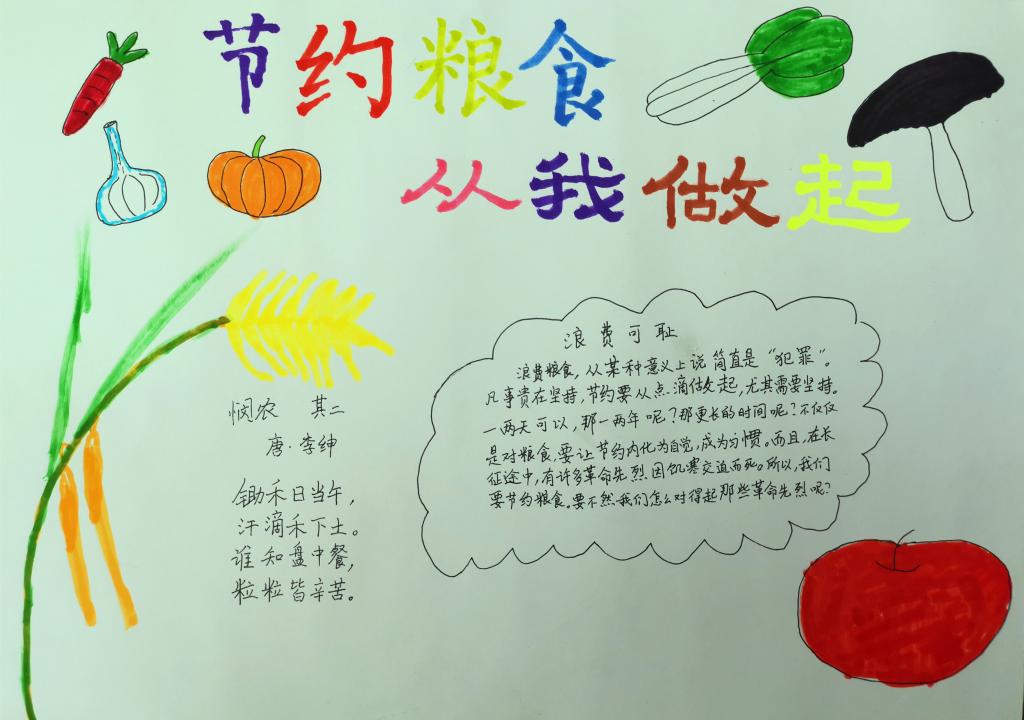 节约粮食
从我做起
悯农 其二
唐·李绅
锄禾日当午，
汗滴禾下土。
谁知盘中餐，
粒粒皆辛苦。
浪费可耻
浪费粮食，从某种意义上说简直是“犯罪”。
凡事贵在坚持，节约要从点滴做起，尤其需要坚持。
一两天可以，那一两年呢？那更长的时间呢？不仅仅
是对粮食，要让节约内化为自觉，成为习惯。而且，在长
征途中，有许多革命先烈因饥寒交迫而死。所以，我们
要节约粮食。要不然我们怎么对得起那些革命先烈呢？